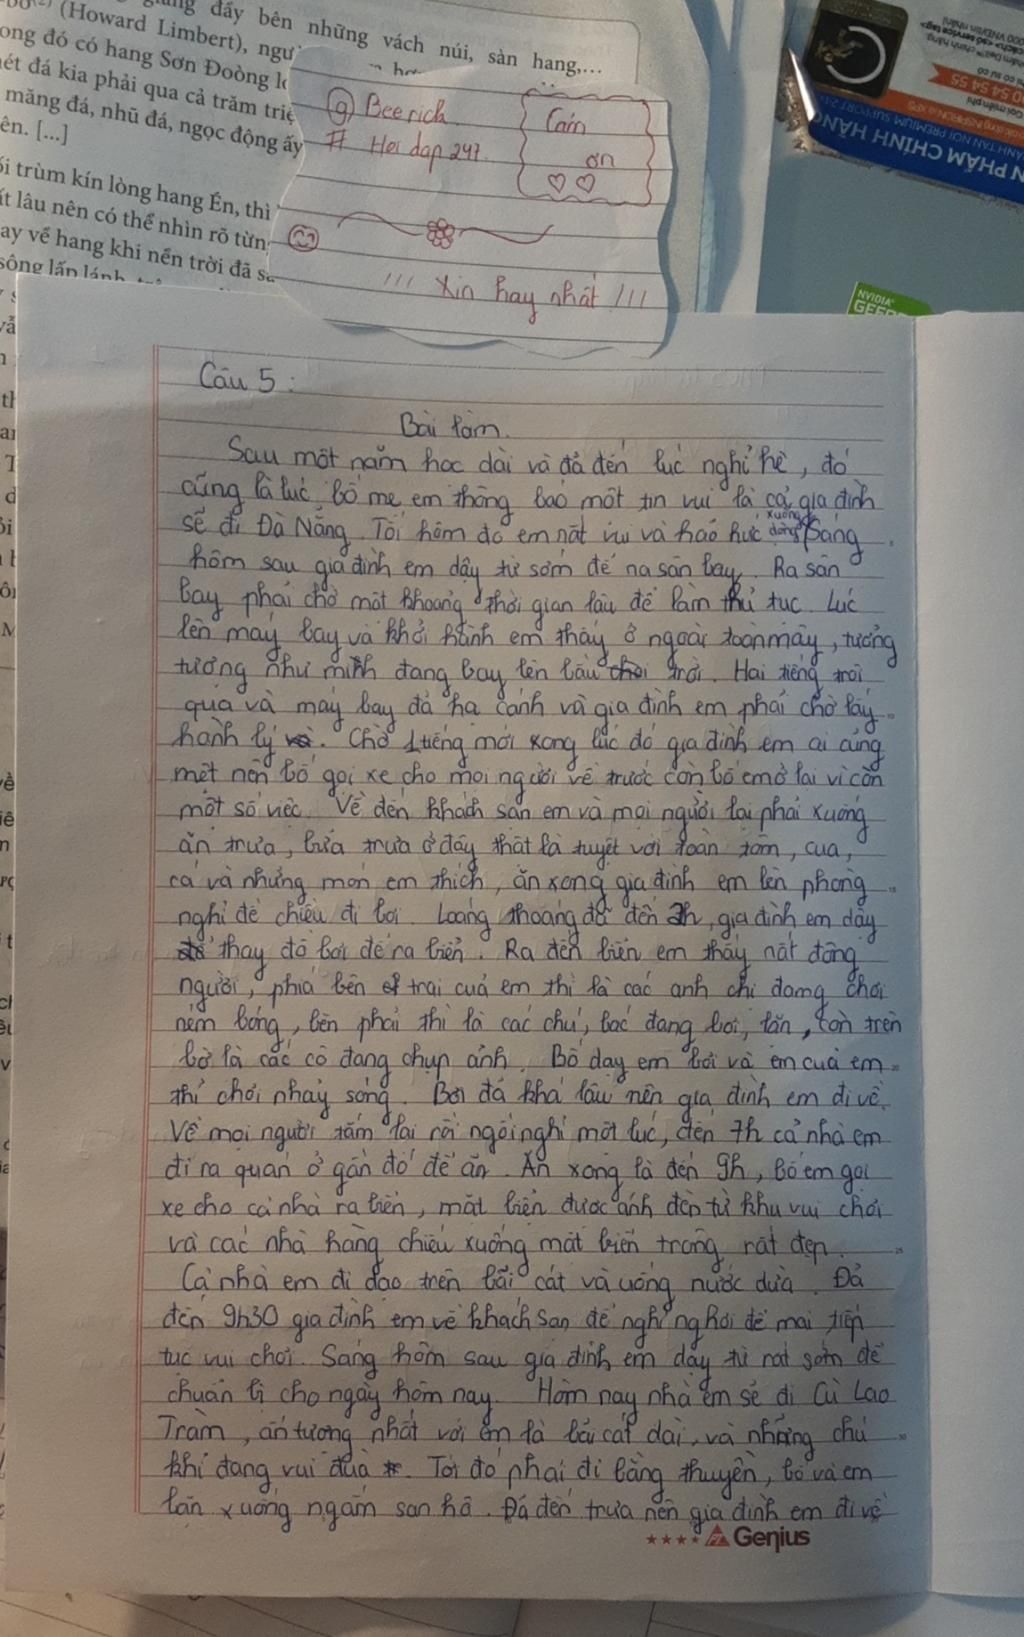 đẩy bên những vách núi, sàn hang,...
(Howard Limbert),
ong đó có hang Sơn Đoòng
ét đá kia phải qua cả trăm triệ
măng đá, nhũ đá, ngọc động ấy
ên. [...]
ối trùm kín lòng hang Én, thì
ất lâu nên có thể nhìn rõ từn
ay về hang khi nền trời đã s
sông lấp lánh
@ Beerich
# Hoidap247.
Cảm
ơn
!!! Xin hay nhất !!!
PHẨM CHÍNH HÃNG
NVIDIA
Câu 5 :
Bài làm.
Sau một năm học dài và đã đến lúc nghỉ hè, đó
cũng là lúc bố mẹ em thông báo một tin vui là cả gia đình
sẽ đi Đà Nẵng. Tối hôm đó em rất vui và háo hức xuống dòng Sáng
hôm sau gia đình em dậy từ sớm để ra sân bay. Ra sân
bay phải chờ một khoảng thời gian lâu để làm thủ tục. Lúc
lên máy bay và khởi hành em thấy ở ngoài toàn mây, tưởng
tượng như mình đang bay lên bầu trời. Hai tiếng trôi
qua và máy bay đã hạ cánh và gia đình em phải chờ lấy
hành lý. Chờ 1 tiếng mới xong lúc đó gia đình em ai cũng
mệt nên bố gọi xe cho mọi người về trước còn bố em ở lại vì còn
một số việc. Về đến khách sạn em và mọi người lại phải xuống
ăn trưa, bữa trưa ở đây thật là tuyệt vời toàn tôm, cua,
cá và những món em thích, ăn xong gia đình em lên phòng
nghỉ để chiều đi bơi. Loáng thoáng đã đến 2h, gia đình em dậy
thay đồ bơi để ra biển. Ra đến biển em thấy rất đông
người, phía bên trái của em thì là các anh chị đang chơi
ném bóng, bên phải thì là các chú, bác đang bơi, lặn, còn trên
bờ là các cô đang chụp ảnh. Bố dạy em bơi và em của em
thì chơi nhảy sóng. Bơi đã khá lâu nên gia đình em đi về.
Về mọi người tắm lại rồi ngồi nghỉ một lúc, đến 7h cả nhà em
đi ra quán ở gần đó để ăn. Ăn xong là đến 9h, bố em gọi
xe cho cả nhà ra biển, mặt biển được ánh đèn từ khu vui chơi
và các nhà hàng chiếu xuống mặt biển trông rất đẹp.
Cả nhà em đi dạo trên bãi cát và uống nước dừa. Đã
đến 9h30 gia đình em về khách sạn để nghỉ ngơi để mai tiếp
tục vui chơi. Sáng hôm sau gia đình em dậy từ rất sớm để
chuẩn bị cho ngày hôm nay. Hôm nay nhà em sẽ đi Cù Lao
Tràm, ấn tượng nhất với em là bãi cát dài, và những chú
khỉ đang vui đùa. Tới đó phải đi bằng thuyền, bố và em
lặn xuống ngắm san hô. Đã đến trưa nên gia đình em đi về
Genius